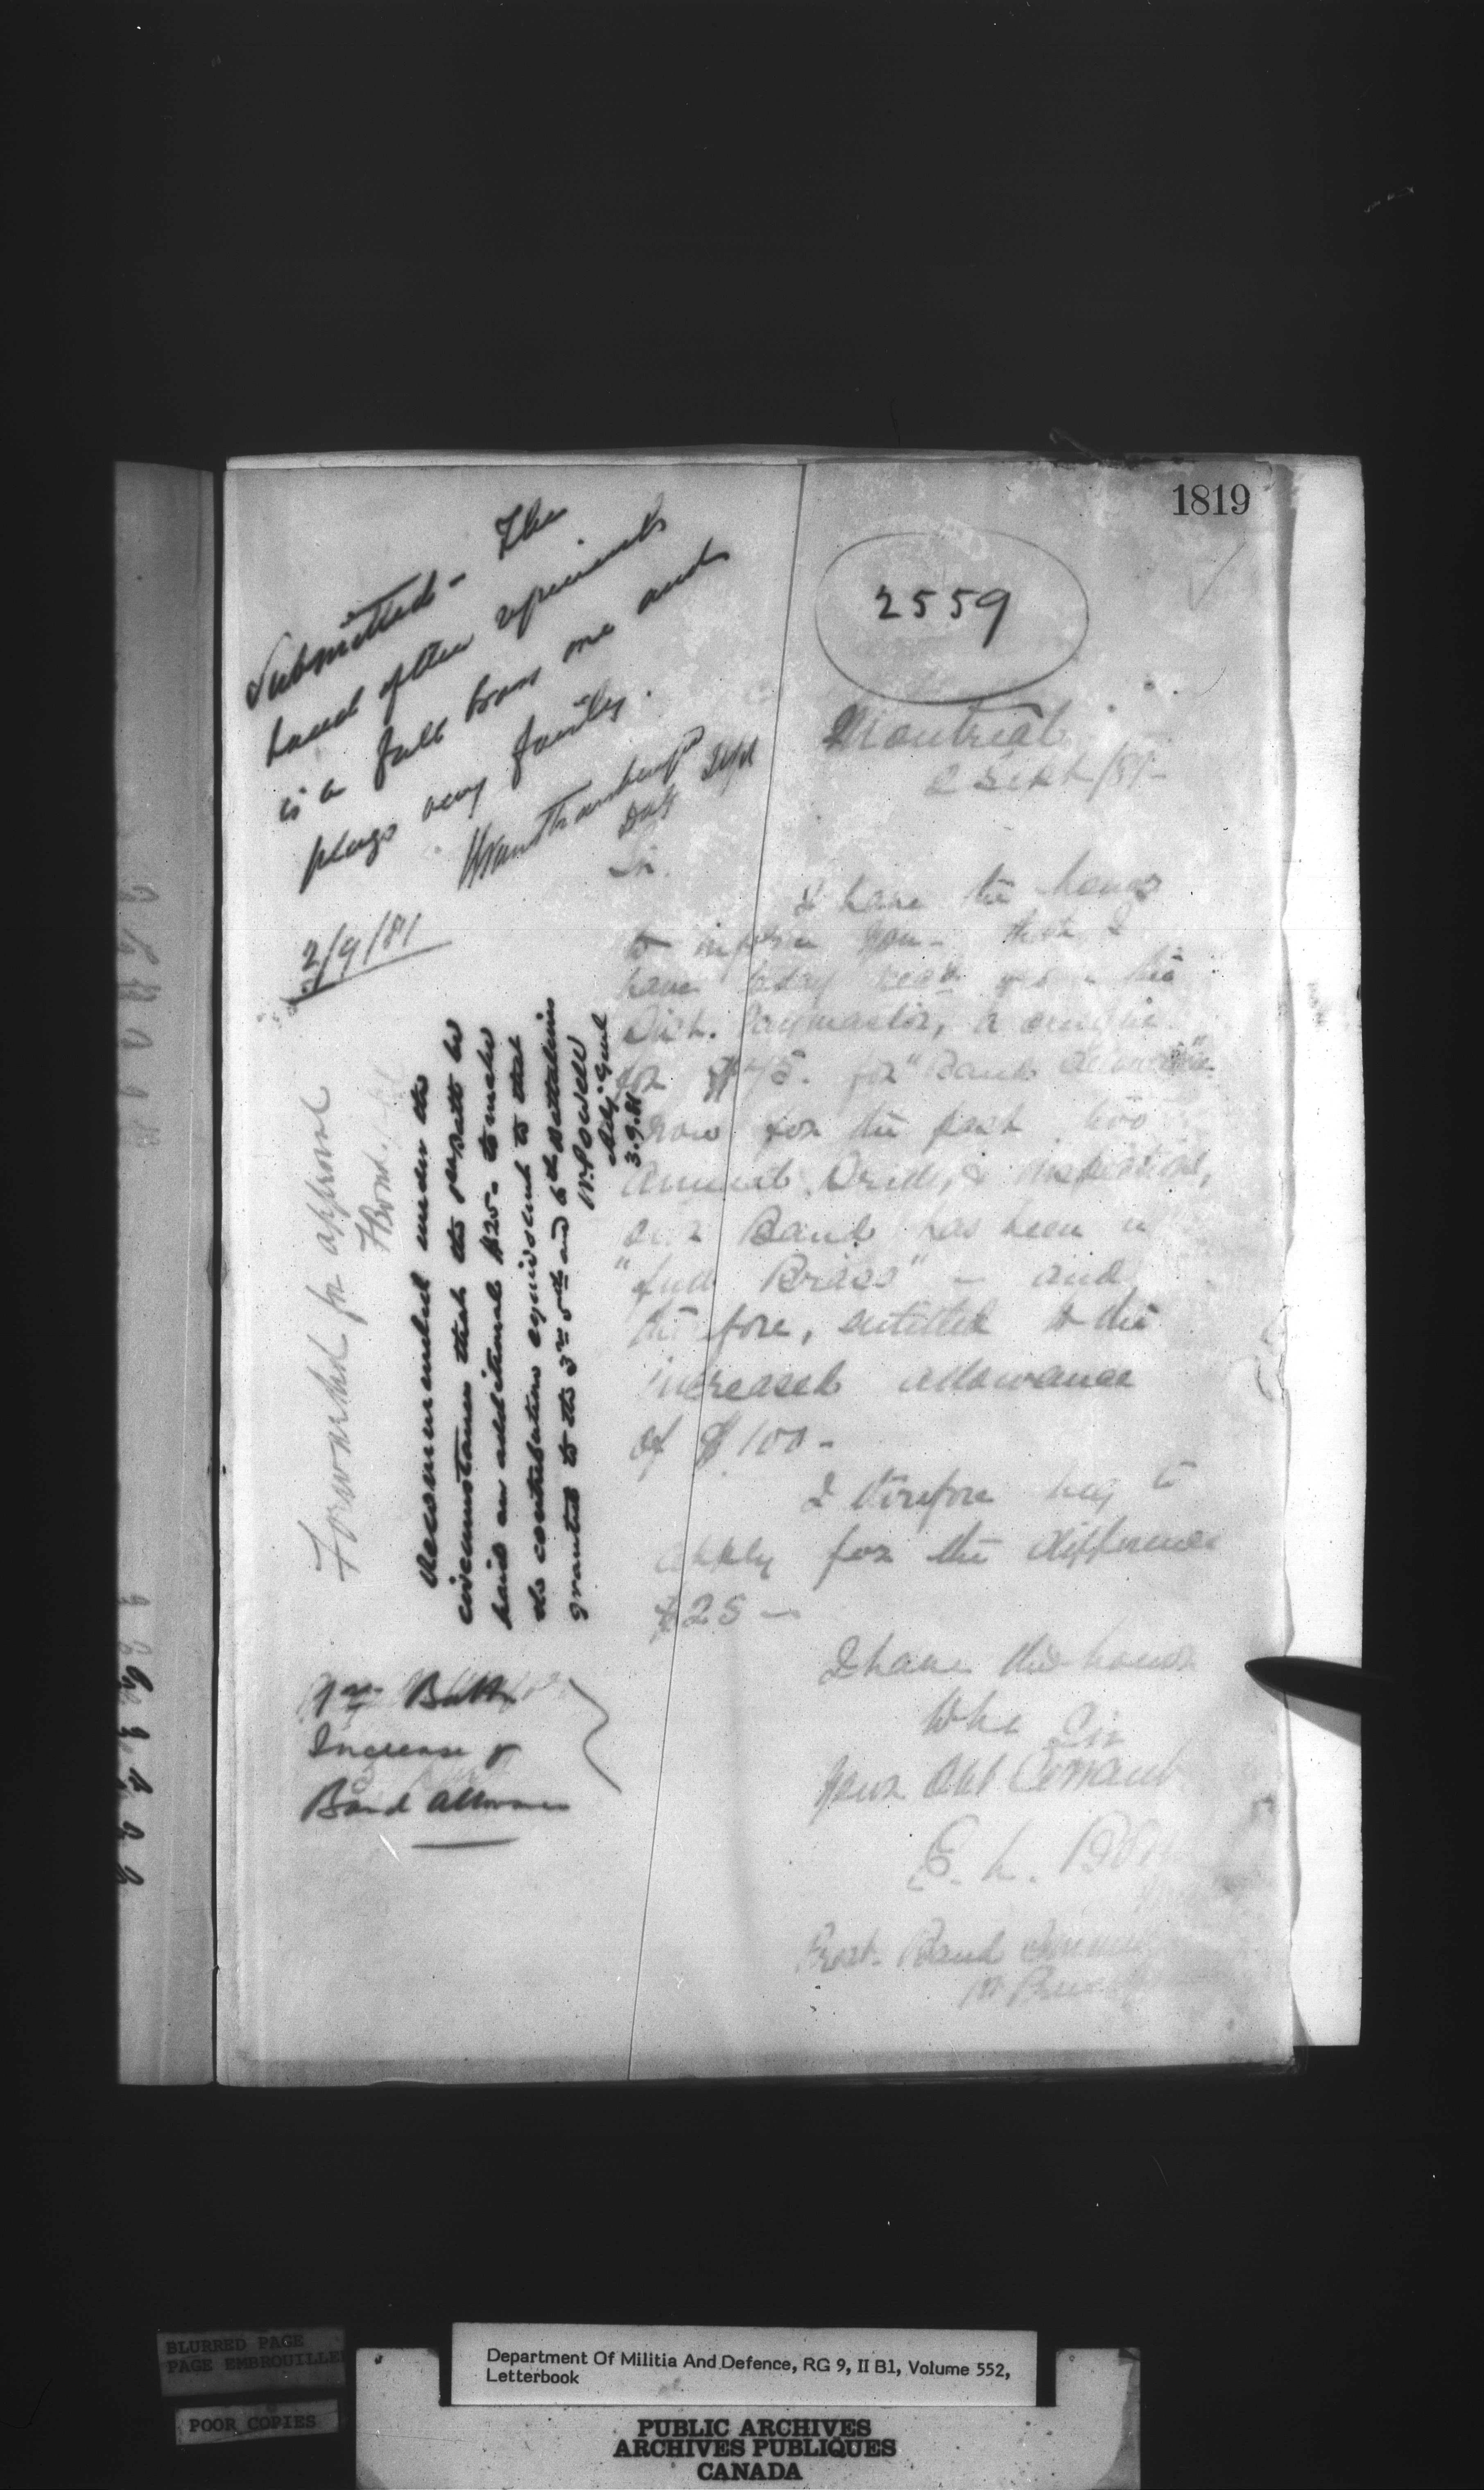 1819
2559
Submitted - The
band of this regiment
is a full brass one and
plays very fairly.
2/9/81
Montreal
2 Sept/81-
Sir.
I have the honor
to inform you - that I
have today rec'd from the
Dist. Paymaster, a cheque
for $75. for "Band allowance"
Now for the past two
Annual Drills, & inspections,
our Band has been a
"full Brass" - and
therefore, entitled to the
increased allowance
of $100-
I therefore beg to
apply for the difference
$25-
I have the honor
to be Sir
Your Obt Servant
E. L. Bond
Prest. Band Committee
Forwarded for approval
F Bond.
Recommended under the
circumstances that the Batt be
paid an additional $25- to make
the contribution equivalent to that
granted to the 3rd 5th and 6th Battalions
W. Powell
Adjt Genl
3.9.81
Batt
Increase of
Band allowance
BLURRED PAGE
PAGE EMBROUILLEE
POOR COPIES
Department Of Militia And Defence, RG 9, II B1, Volume 552,
Letterbook
PUBLIC ARCHIVES
ARCHIVES PUBLIQUES
CANADA